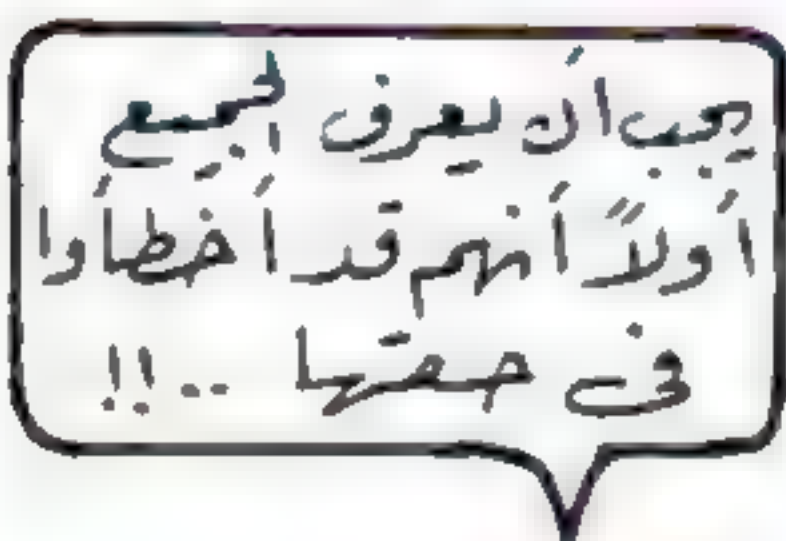 يجب أن يعرف الجميع
أولاً أنهم قد أخطأوا
فى حقها ..!!